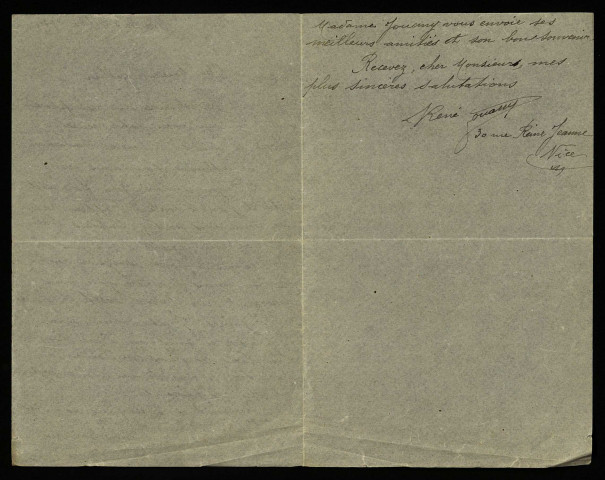 Madame Jouany vous envoie ses
meilleurs amitiés et son bon souvenir
Recevez, cher Monsieur, mes
plus sincères salutations
René Jouany
30 rue Reine Jeanne
Nice